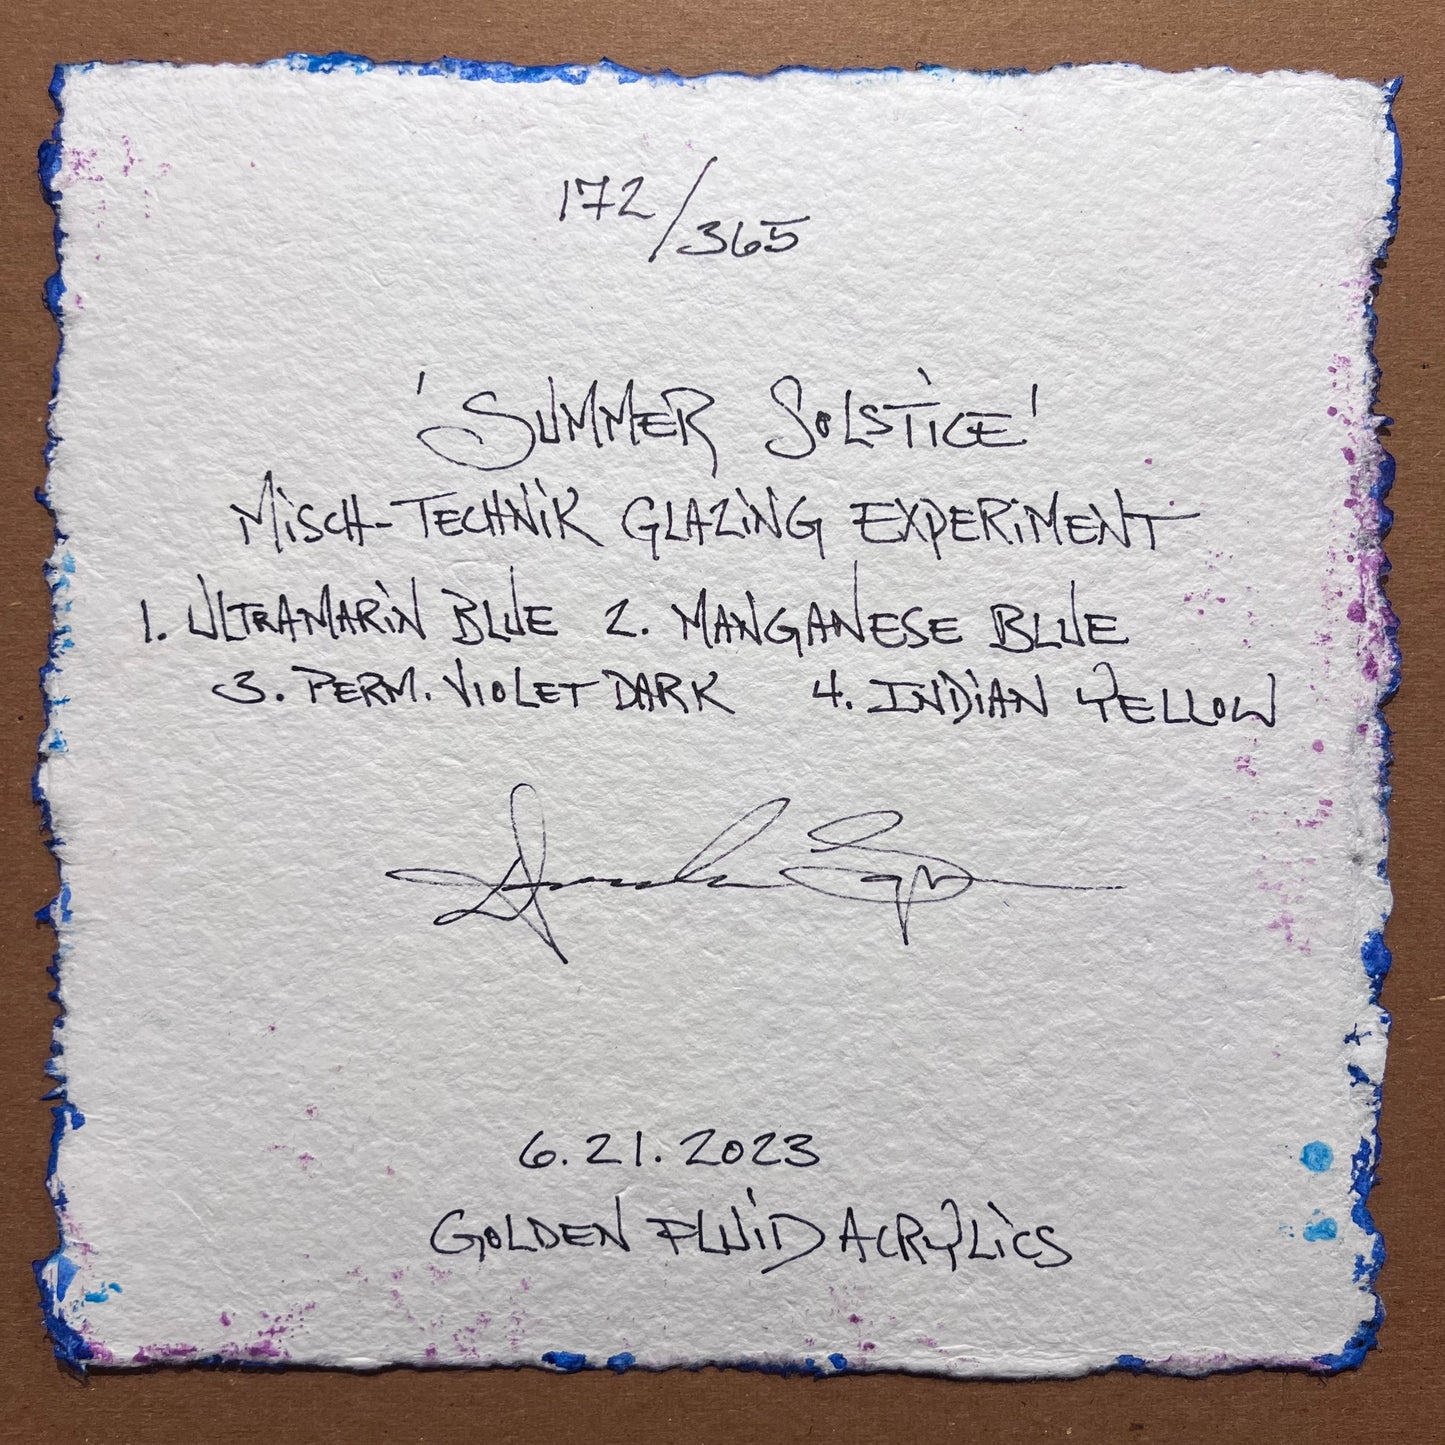 172/365
'SUMMER SOLSTICE'
MISCH-TECHNIK GLAZING EXPERIMENT
1. ULTRAMARIN BLUE 2. MANGANESE BLUE
3. PERM. VIOLET DARK 4. INDIAN YELLOW
6.21.2023
GOLDEN FLUID ACRYLICS